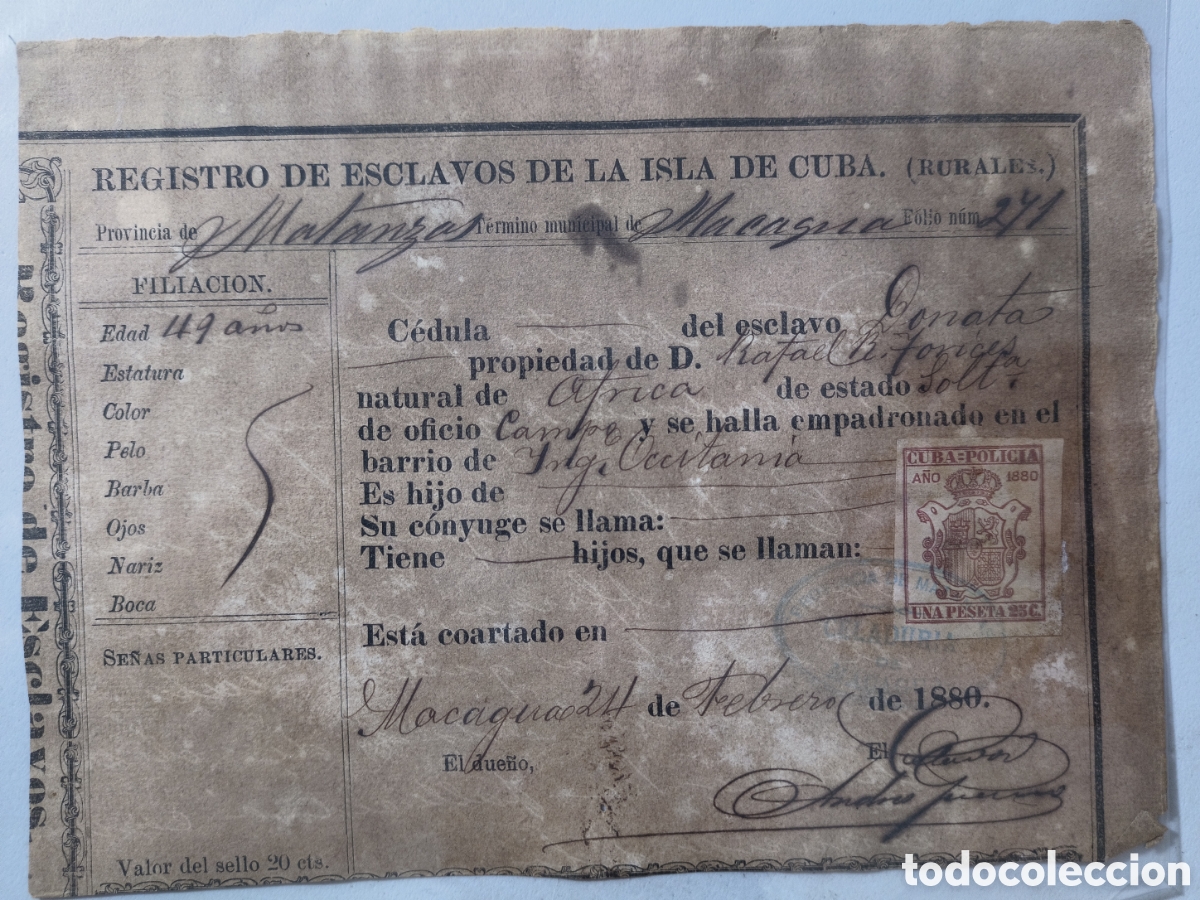 REGISTRO DE ESCLAVOS DE LA ISLA DE CUBA. (RURALES.)
Provincia de Matanzas Término municipal de Macagua Folio núm. 271
FILIACION.
Edad 49 años
Estatura
Color
Pelo
Barba
Ojos
Nariz
Boca
SEÑAS PARTICULARES.
Valor del sello 20 cts.
Cédula del esclavo Donata
propiedad de D. Rafael R. Torices
natural de Africa de estado Solta.
de oficio Campo y se halla empadronado en el
barrio de Ing. Occitania
Es hijo de
Su cónyuge se llama:
Tiene hijos, que se llaman:
Está coartado en
Macagua 24 de Febrero de 1880.
El dueño,
El
CUBA=POLICIA
AÑO 1880
UNA PESETA 25 C.
Registro de Esclavos
todocoleccion